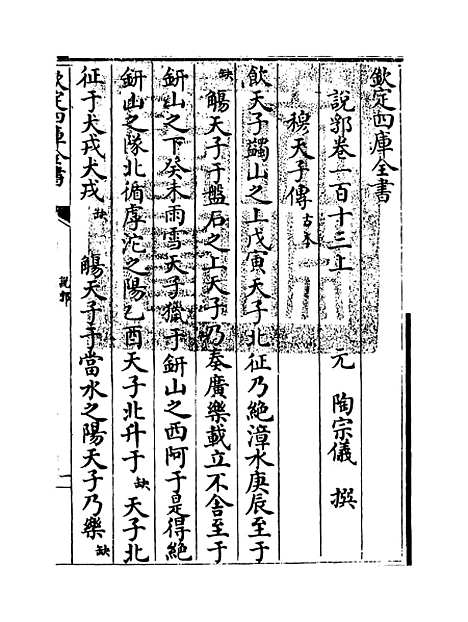 欽定四庫全書
說郛卷一百十三上
元 陶宗儀 撰
穆天子傳古本
飲天子蠲山之上戊寅天子北征乃絶漳水庚辰至于
缺觴天子于盤石之上天子乃奏廣樂載立不舍至于
鈃山之下癸未雨雪天子獵于鈃山之西阿于是得絶
鈃山之隊北循虖沱之陽乙酉天子北升于缺天子北
征于犬戎犬戎缺觴天子于當水之陽天子乃樂缺
欽定四庫全書
說郛
一